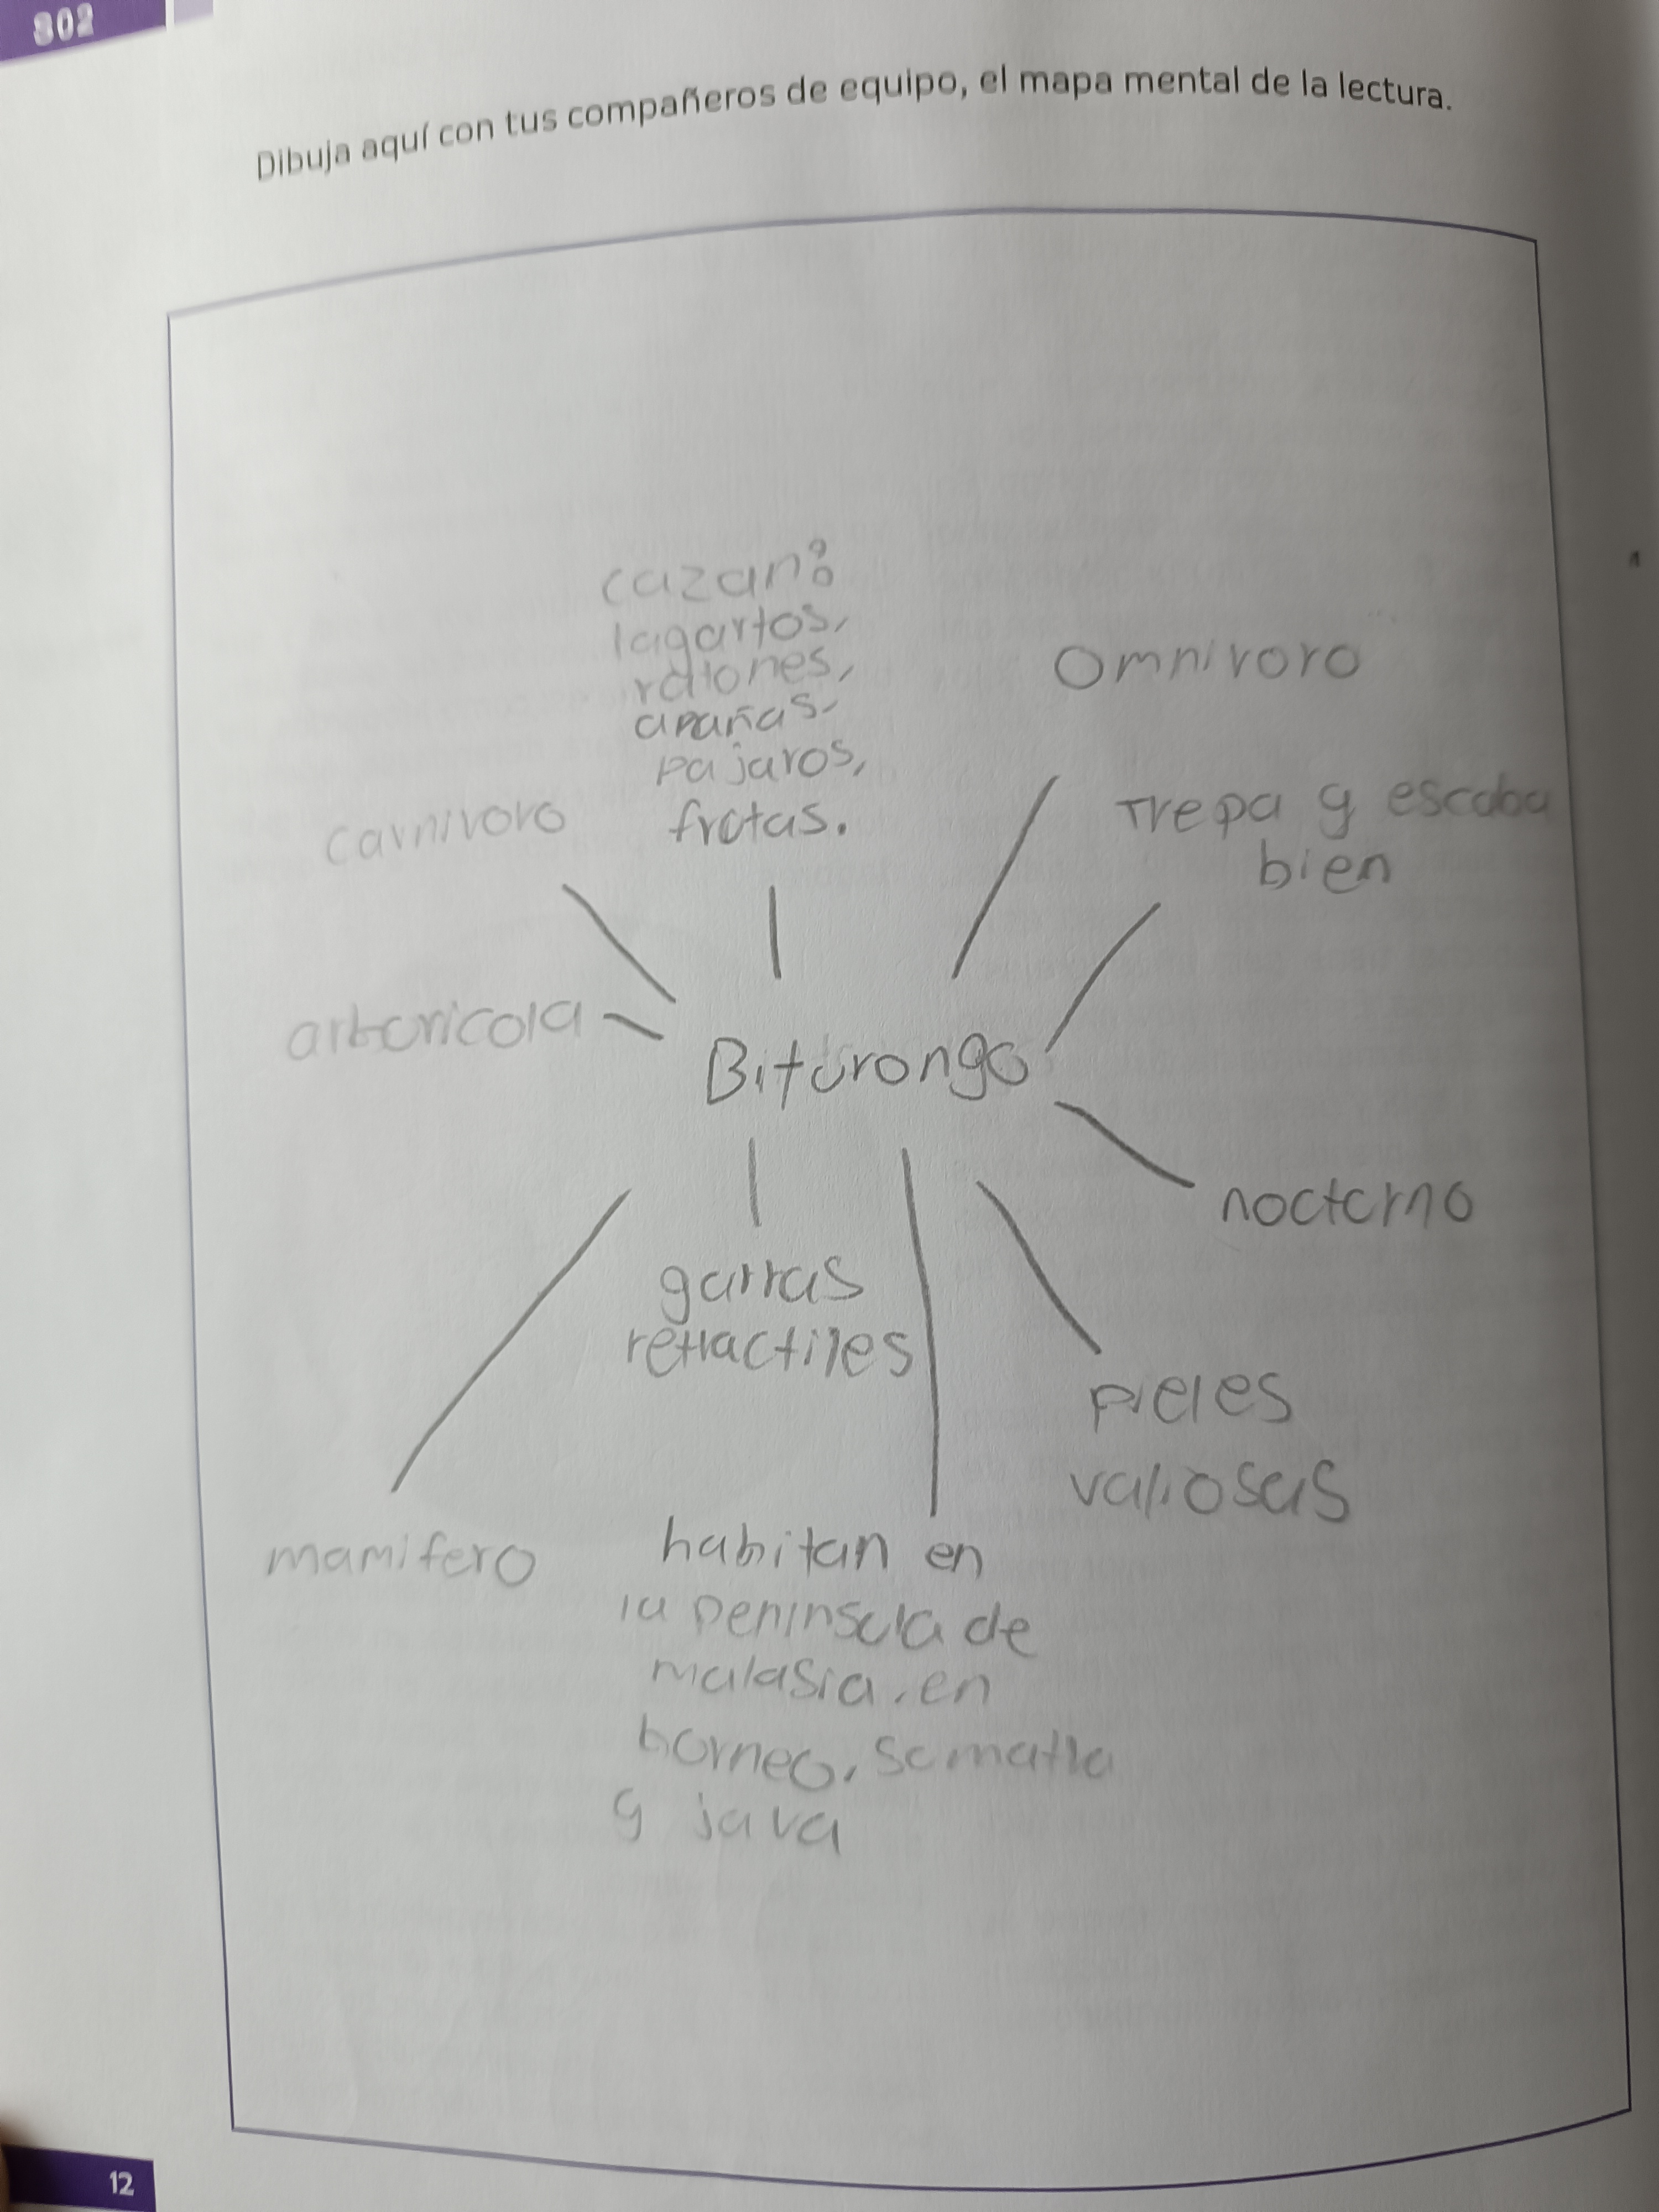 302
Dibuja aquí con tus compañeros de equipo, el mapa mental de la lectura.
cazan:
lagartos,
ratones,
arañas,
pajaros,
frutas.
Omnivoro
carnivoro
Trepa y escaba
bien
arboricola
Biturongo
nocturno
garras
retractiles
pieles
valiosas
mamifero
habitan en
la peninsula de
malasia, en
borneo, sumatra
y java
12